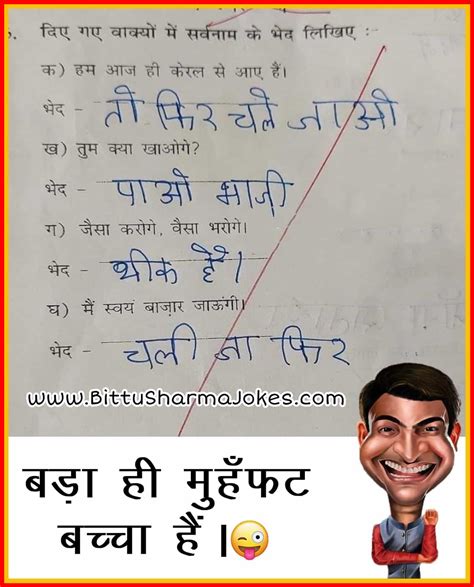 दिए गए वाक्यों में सर्वनाम के भेद लिखिए :-
क) हम आज ही केरल से आए हैं।
भेद - तो फिर चले जाओ
ख) तुम क्या खाओगे?
भेद - पाओ भाजी
ग) जैसा करोगे, वैसा भरोगे।
भेद - थीक हैै।
घ) मैं स्वयं बाज़ार जाऊंगी।
भेद - चली जा फिर
www.BittuSharmaJokes.com
बड़ा ही मुहँफट
बच्चा हैं।😜